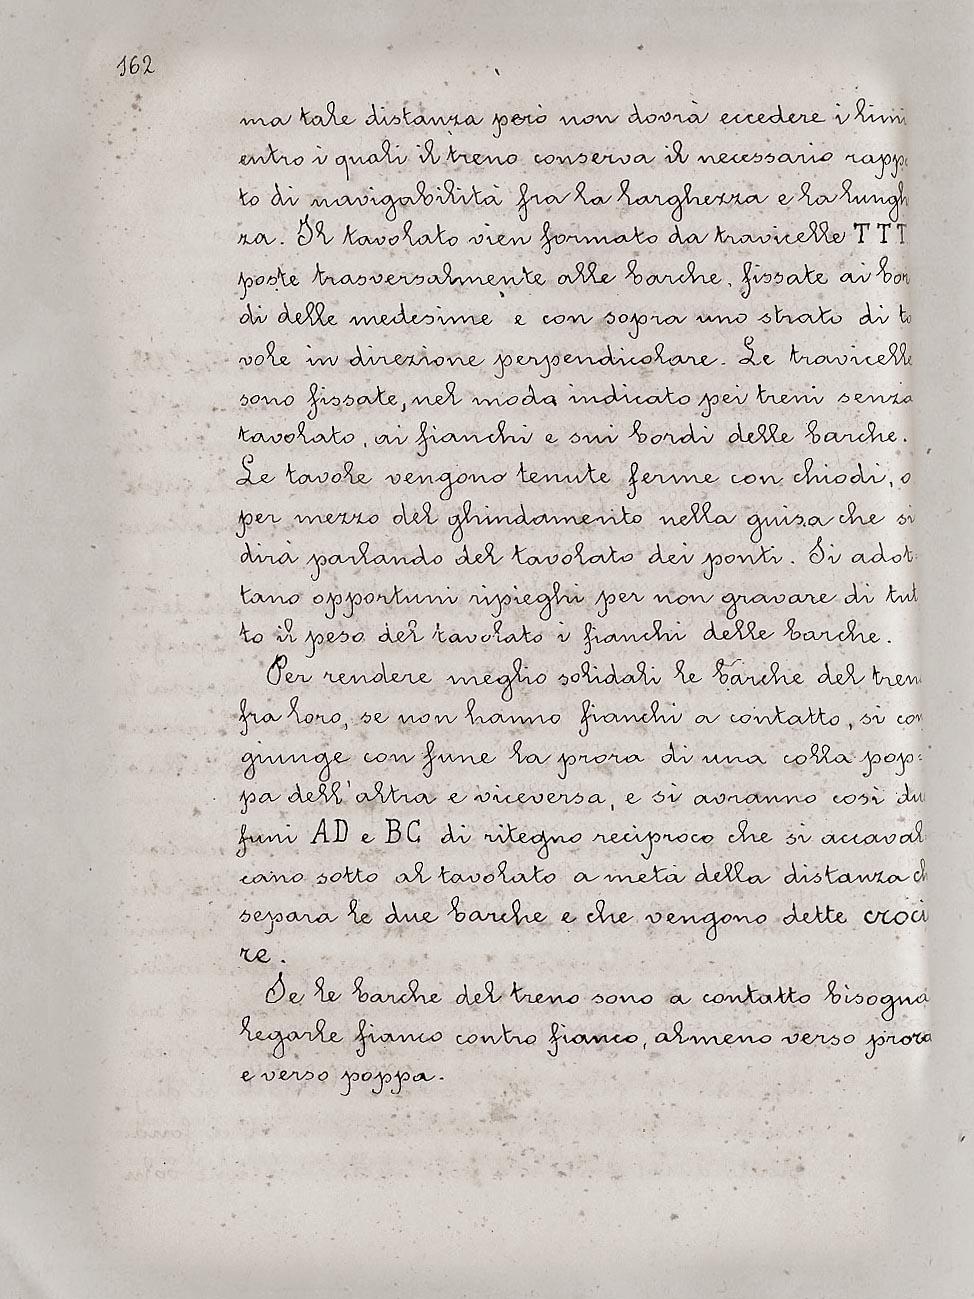 162
ma tale distanza però non dovrà eccedere i limi
entro i quali il treno conserva il necessario rappo
to di navigabilità fra la larghezza e la lungh
za. Il tavolato vien formato da travicelle TTT
poste trasversalmente alle barche, fissate ai bor
di delle medesime e con sopra uno strato di ta
vole in direzione perpendicolare. Le travicelle
sono fissate, nel modo indicato pei treni senza
tavolato, ai fianchi e sui bordi delle barche.
Le tavole vengono tenute ferme con chiodi, o
per mezzo del ghindamento nella guisa che si
dirà parlando del tavolato dei ponti. Si adot:
tano opportuni ripieghi per non gravare di tut
to il peso del tavolato i fianchi delle barche.
Per rendere meglio solidali le barche del tren
fra loro, se non hanno fianchi a contatto, si con
giunge con fune la prora di una colla pop:
pa dell'altra e viceversa, e si avranno così du
funi AD e BC di ritegno reciproco che si accaval
cano sotto al tavolato a metà della distanza ch
separa le due barche e che vengono dette croci
re.
Se le barche del treno sono a contatto bisogna
legarle fianco contro fianco, almeno verso prora
e verso poppa.